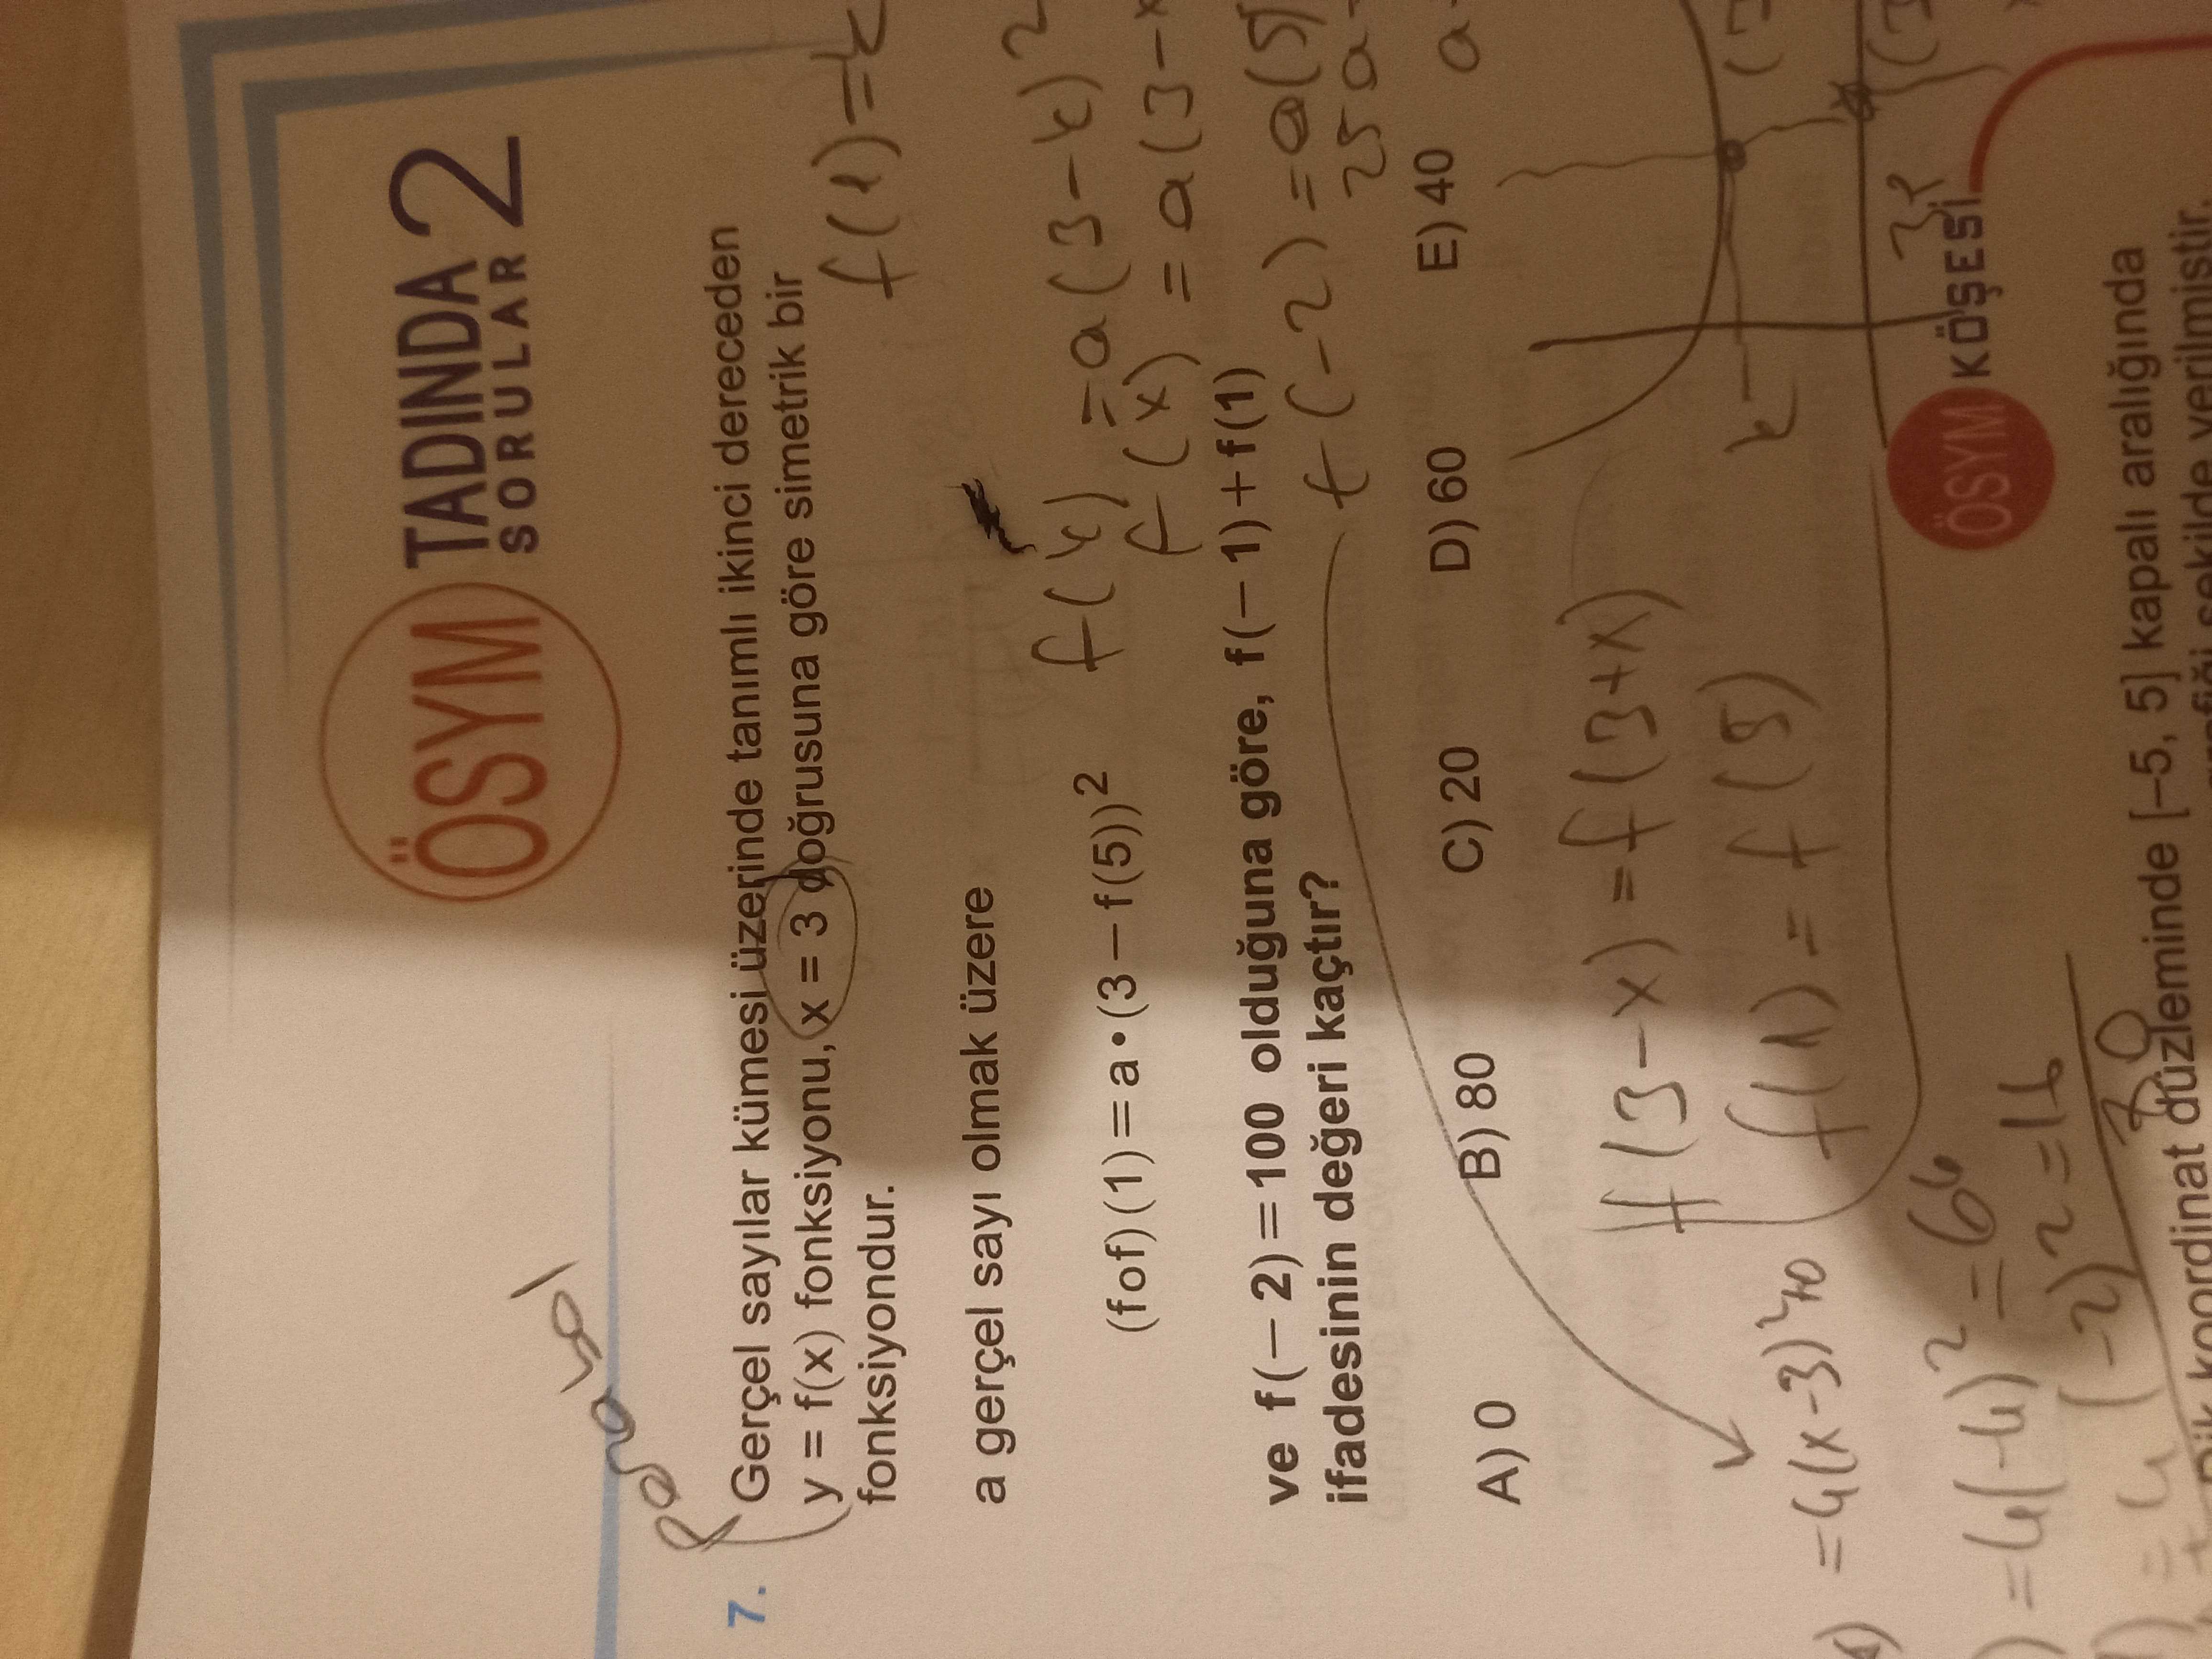 ÖSYM TADINDA 2
SORULAR
Paraval
7. Gerçel sayılar kümesi üzerinde tanımlı ikinci dereceden
y = f(x) fonksiyonu, x = 3 doğrusuna göre simetrik bir
fonksiyondur.
f(1)=k
a gerçel sayı olmak üzere
(fof)(1) = a•(3 – f(5))²
f(k) = a(3-k)²
f(x) = a(3-x
ve f(– 2) = 100 olduğuna göre, f(– 1) + f(1)
ifadesinin değeri kaçtır?
f(-2) = a(5)
25a
a
A) 0 B) 80 C) 20 D) 60 E) 40
f(3-x) = f(3+x)
f(1) = f(5)
k
= 4(x-3)²+0
) = 4(-4)² = 64
) = 4(-2)² = 16
80
ÖSYM KÖŞESİ
Dik koordinat düzleminde [–5, 5] kapalı aralığında
şekilde verilmiştir.